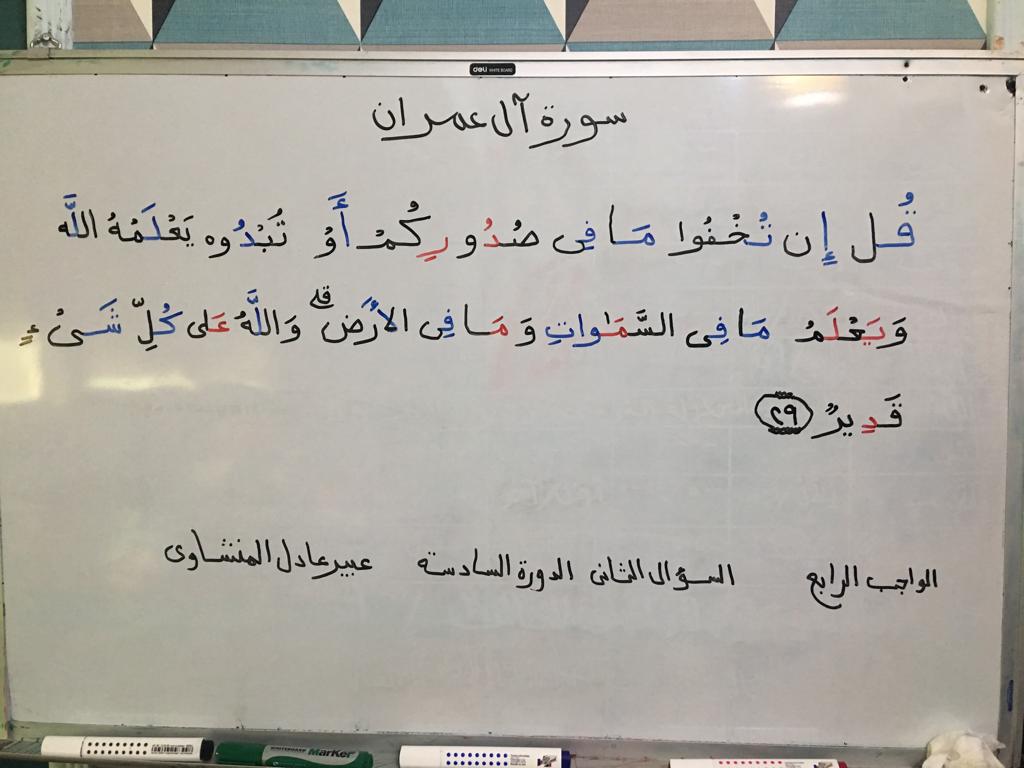 deli WHITE BOARD
سورة آل عمران
قُل إِن تُخْفُوا مَا فِى صُدُورِكُمْ أَوْ تُبْدُوه يَعْلَمْهُ اللَّه
وَيَعْلَمُ مَا فِى السَّمَٰوَاتِ وَمَا فِى الأَرْضِ ۗ وَاللَّهُ عَلى كُلِّ شَىْءٍ
قَدِيرٌ ٢٩
الواجب الرابع السؤال الثانى الدورة السادسة عبير عادل المنشاوى
WHITEBOARD MarKer